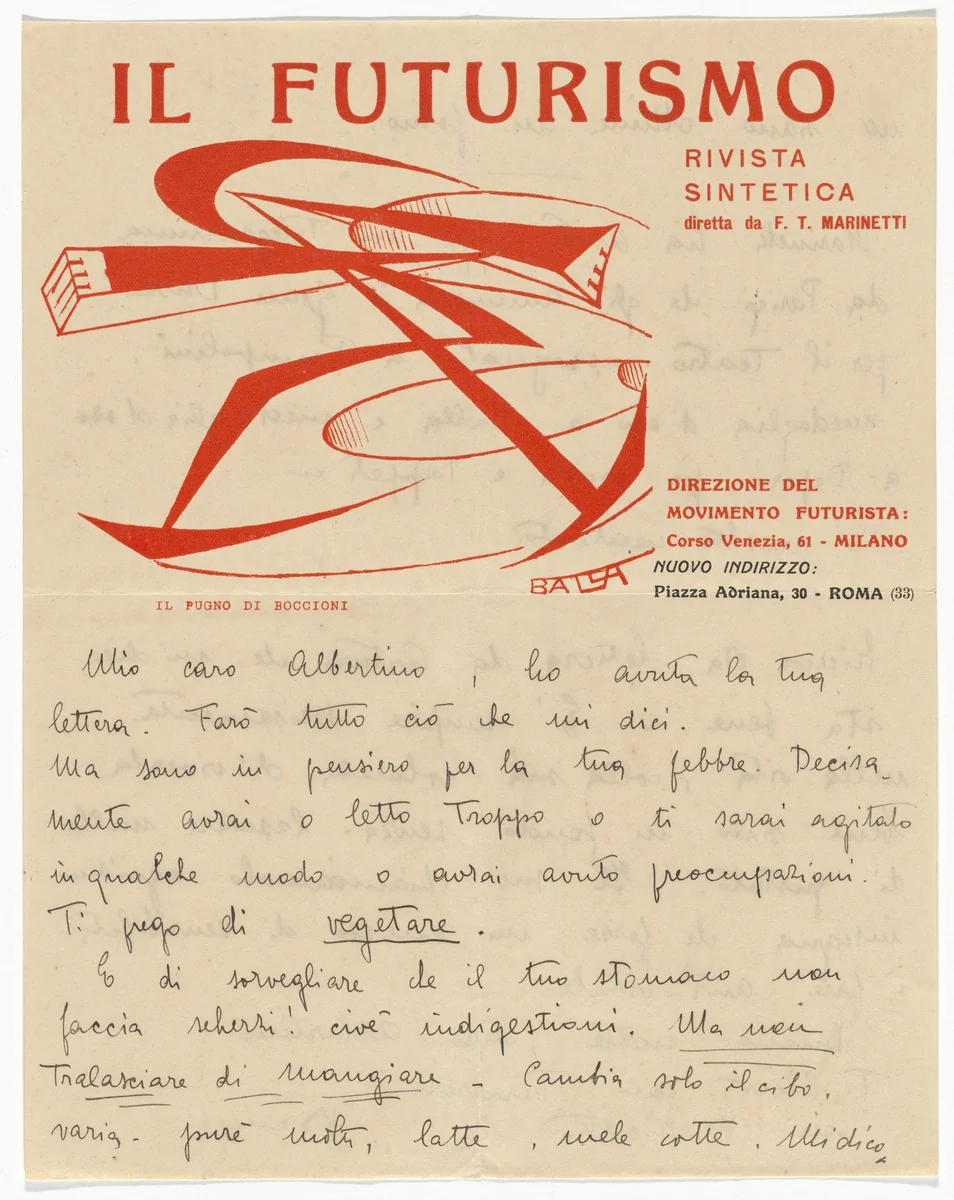 IL FUTURISMO
RIVISTA
SINTETICA
diretta da F. T. MARINETTI
DIREZIONE DEL
MOVIMENTO FUTURISTA:
Corso Venezia, 61 - MILANO
NUOVO INDIRIZZO:
Piazza Adriana, 30 - ROMA (33)
BALLA
IL PUGNO DI BOCCIONI
Mio caro Albertino, ho avuta la tua
lettera. Farò tutto ciò che mi dici.
Ma sono in pensiero per la tua febbre. Decisa-
mente avrai o letto troppo o ti sarai agitato
in qualche modo o avrai avuto preoccupazioni.
Ti prego di vegetare.
E di sorvegliare che il tuo stomaco non
faccia scherzi! cioè indigestioni. Ma non
tralasciare di mangiare - Cambia solo il cibo.
varia - purè molta, latte, mele cotte. Mi dico